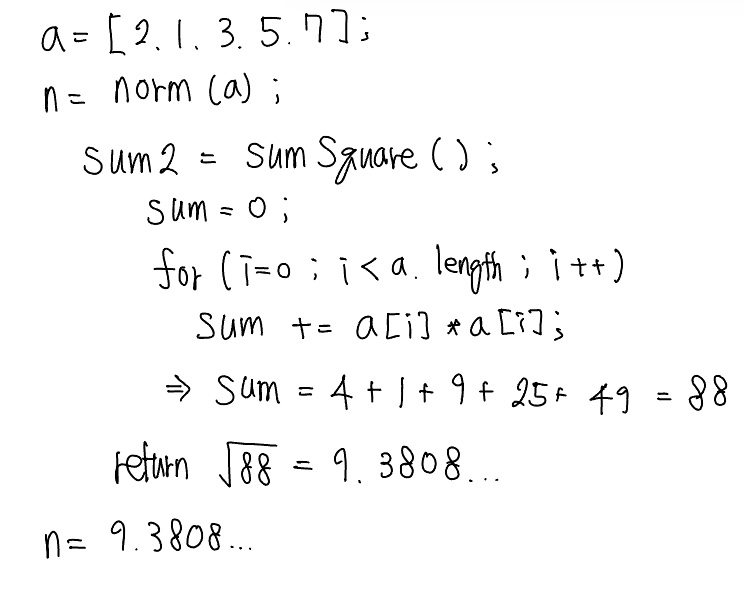 a = [2. 1. 3. 5. 7];
n = norm (a) ;
sum2 = sum Square ( ) ;
sum = 0 ;
for (i=0 ; i < a. length ; i ++)
sum += a[i] * a[i];
⇒ sum = 4 + 1 + 9 + 25 + 49 = 88
return √88 = 9.3808...
n = 9.3808...